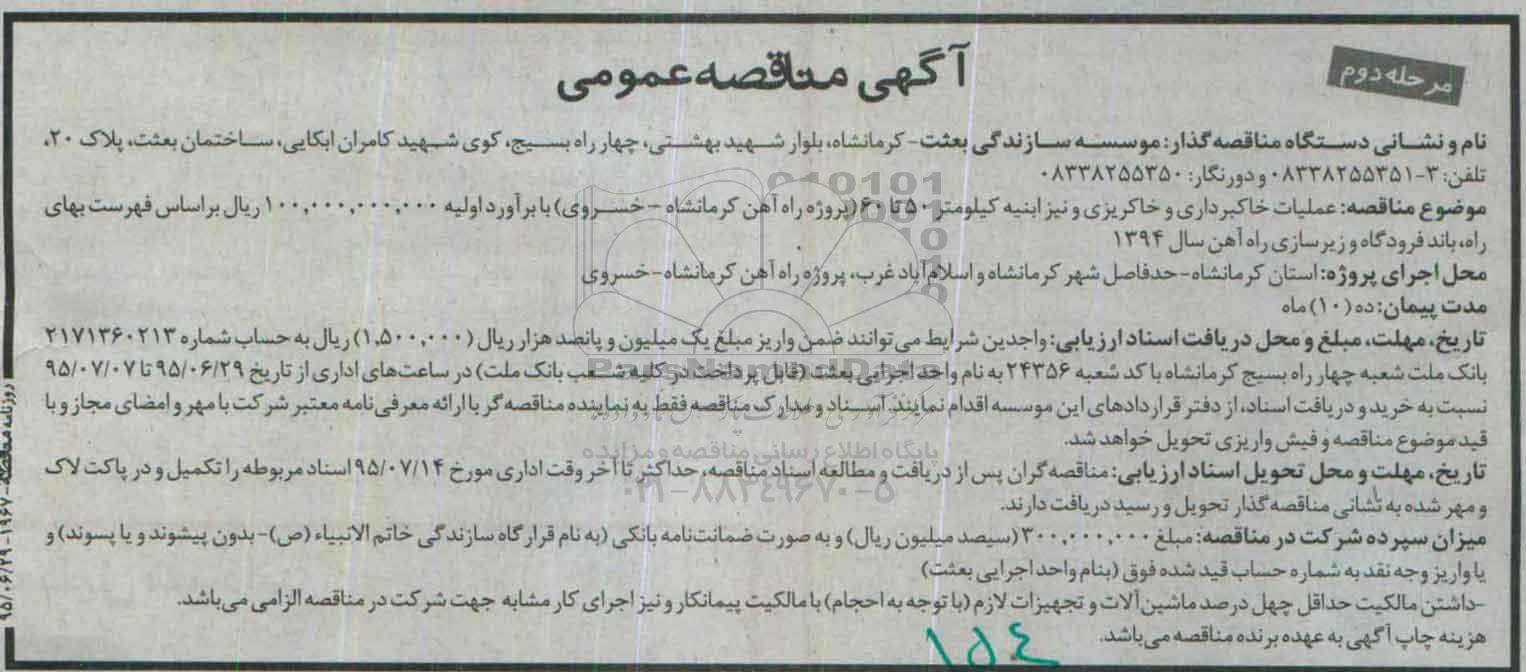 مرحله دوم
آگهی مناقصه عمومی
نام و نشانی دستگاه مناقصه گذار: موسسه سازندگی بعثت- کرمانشاه، بلوار شهید بهشتی، چهار راه بسیج، کوی شهید کامران ابکایی، ساختمان بعثت، پلاک ۲۰،
تلفن: ۳-۰۸۳۳۸۲۵۵۳۵۱ و دورنگار: ۰۸۳۳۸۲۵۵۳۵۰
موضوع مناقصه: عملیات خاکبرداری و خاکریزی و نیز ابنیه کیلومتر ۵۰ تا ۶۰ (پروژه راه آهن کرمانشاه - خسروی) با برآورد اولیه ۱۰۰,۰۰۰,۰۰۰,۰۰۰ ریال براساس فهرست بهای
راه، باند فرودگاه و زیرسازی راه آهن سال ۱۳۹۴
محل اجرای پروژه: استان کرمانشاه-حدفاصل شهر کرمانشاه و اسلام‌آباد غرب، پروژه راه آهن کرمانشاه-خسروی
مدت پیمان: ده (۱۰) ماه
تاریخ، مهلت، مبلغ و محل دریافت اسناد ارزیابی: واجدین شرایط می‌توانند ضمن واریز مبلغ یک میلیون و پانصد هزار ریال (۱,۵۰۰,۰۰۰) ریال به حساب شماره ۲۱۷۱۳۶۰۲۱۳
بانک ملت شعبه چهار راه بسیج کرمانشاه با کد شعبه ۲۴۳۵۶ به نام واحد اجرایی بعثت (قابل پرداخت در کلیه شعب بانک ملت) در ساعت‌های اداری از تاریخ ۹۵/۰۶/۲۹ تا ۹۵/۰۷/۰۷
نسبت به خرید و دریافت اسناد، از دفتر قراردادهای این موسسه اقدام نمایند. اسناد و مدارک مناقصه فقط به نماینده مناقصه‌گر با ارائه معرفی‌نامه معتبر شرکت با مهر و امضای مجاز و با
قید موضوع مناقصه و فیش واریزی تحویل خواهد شد.
تاریخ، مهلت و محل تحویل اسناد ارزیابی: مناقصه گران پس از دریافت و مطالعه اسناد مناقصه، حداکثر تا آخر وقت اداری مورخ ۹۵/۰۷/۱۴ اسناد مربوطه را تکمیل و در پاکت لاک
و مهر شده به نشانی مناقصه گذار تحویل و رسید دریافت دارند.
میزان سپرده شرکت در مناقصه: مبلغ ۳۰۰,۰۰۰,۰۰۰ (سیصد میلیون ریال) و به صورت ضمانت‌نامه بانکی (به نام قرارگاه سازندگی خاتم الانبیاء (ص)-بدون پیشوند و یا پسوند) و
یا واریز وجه نقد به شماره حساب قید شده فوق (بنام واحد اجرایی بعثت)
-داشتن مالکیت حداقل چهل درصد ماشین‌آلات و تجهیزات لازم (با توجه به احجام) با مالکیت پیمانکار و نیز اجرای کار مشابه جهت شرکت در مناقصه الزامی می‌باشد.
هزینه چاپ آگهی به عهده برنده مناقصه می‌باشد.
۱۵۴
روزنامه مناقصه - ۱۹۶۷ - ۹۵/۰۶/۲۹
پایگاه اطلاع رسانی مناقصه و مزایده
۰۲۱-۸۸۳۴۹۶۷۰-۵